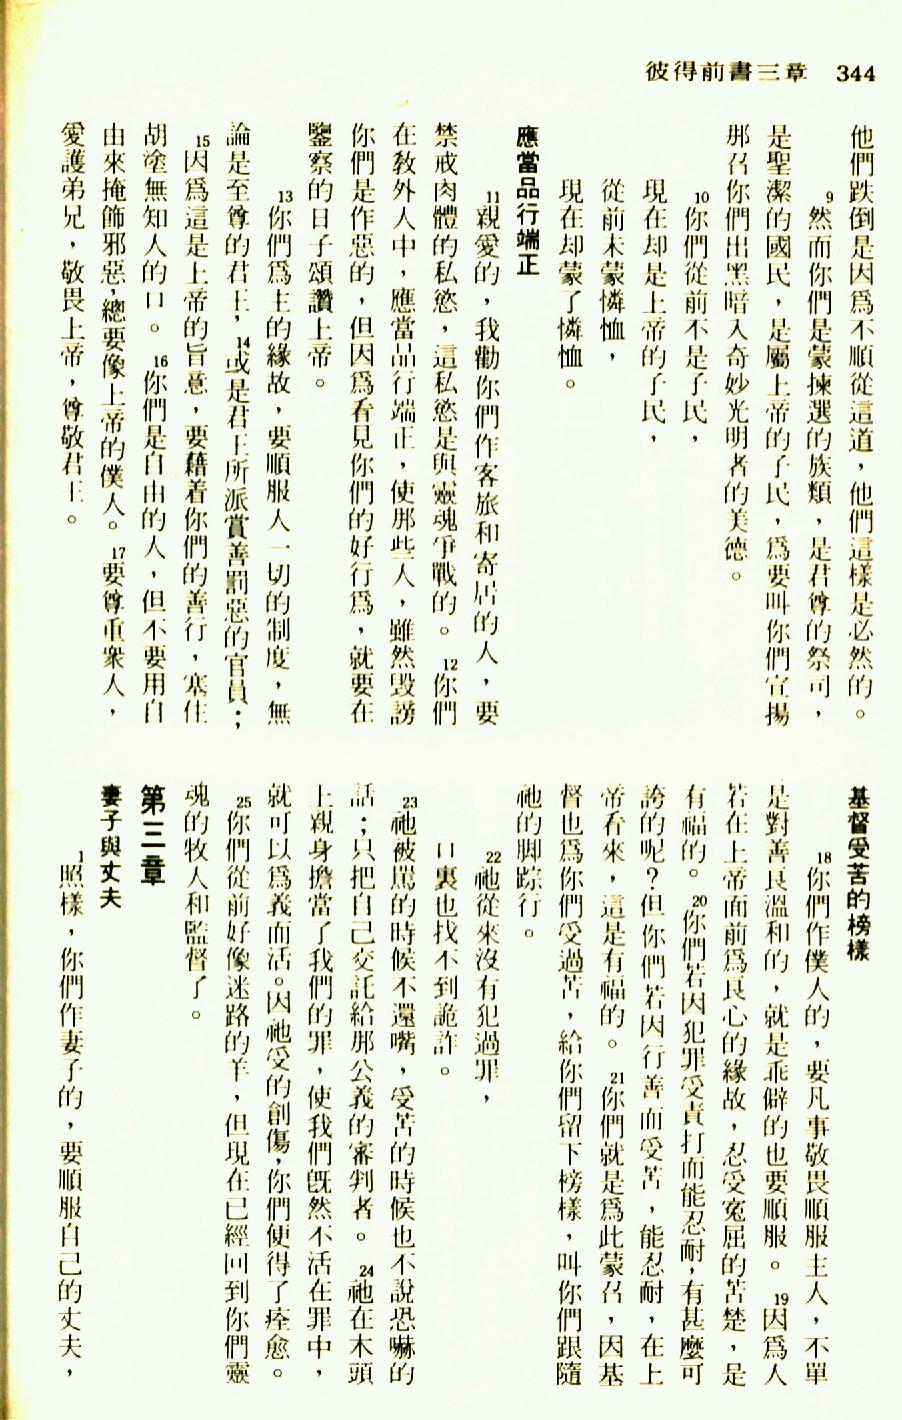 彼得前書三章 344
他們跌倒是因爲不順從這道，他們這樣是必然的。
9然而你們是蒙揀選的族類，是君尊的祭司，
是聖潔的國民，是屬上帝的子民，爲要叫你們宣揚
那召你們出黑暗入奇妙光明者的美德。
10你們從前不是子民，
現在却是上帝的子民，
從前未蒙憐恤，
現在却蒙了憐恤。
應當品行端正
11親愛的，我勸你們作客旅和寄居的人，要
禁戒肉體的私慾，這私慾是與靈魂爭戰的。12你們
在教外人中，應當品行端正，使那些人，雖然毀謗
你們是作惡的，但因爲看見你們的好行爲，就要在
鑒察的日子頌讚上帝。
13你們爲主的緣故，要順服人一切的制度，無
論是至尊的君王，14或是君王所派賞善罰惡的官員；
15因爲這是上帝的旨意，要藉着你們的善行，塞住
胡塗無知人的口。16你們是自由的人，但不要用自
由來掩飾邪惡，總要像上帝的僕人。17要尊重衆人，
愛護弟兄，敬畏上帝，尊敬君王。
基督受苦的榜樣
18你們作僕人的，要凡事敬畏順服主人，不單
是對善良溫和的，就是乖僻的也要順服。19因爲人
若在上帝面前爲良心的緣故，忍受寃屈的苦楚，是
有福的。20你們若因犯罪受責打而能忍耐，有甚麼可
誇的呢？但你們若因行善而受苦，能忍耐，在上
帝看來，這是有福的。21你們就是爲此蒙召，因基
督也爲你們受過苦，給你們留下榜樣，叫你們跟隨
祂的脚踪行。
22祂從來沒有犯過罪，
口裏也找不到詭詐。
23祂被罵的時候不還嘴，受苦的時候也不說恐嚇的
話；只把自己交託給那公義的審判者。24祂在木頭
上親身擔當了我們的罪，使我們旣然不活在罪中，
就可以爲義而活。因祂受的創傷，你們便得了痊愈。
25你們從前好像迷路的羊，但現在已經回到你們靈
魂的牧人和監督了。
第三章
妻子與丈夫
1照樣，你們作妻子的，要順服自己的丈夫，